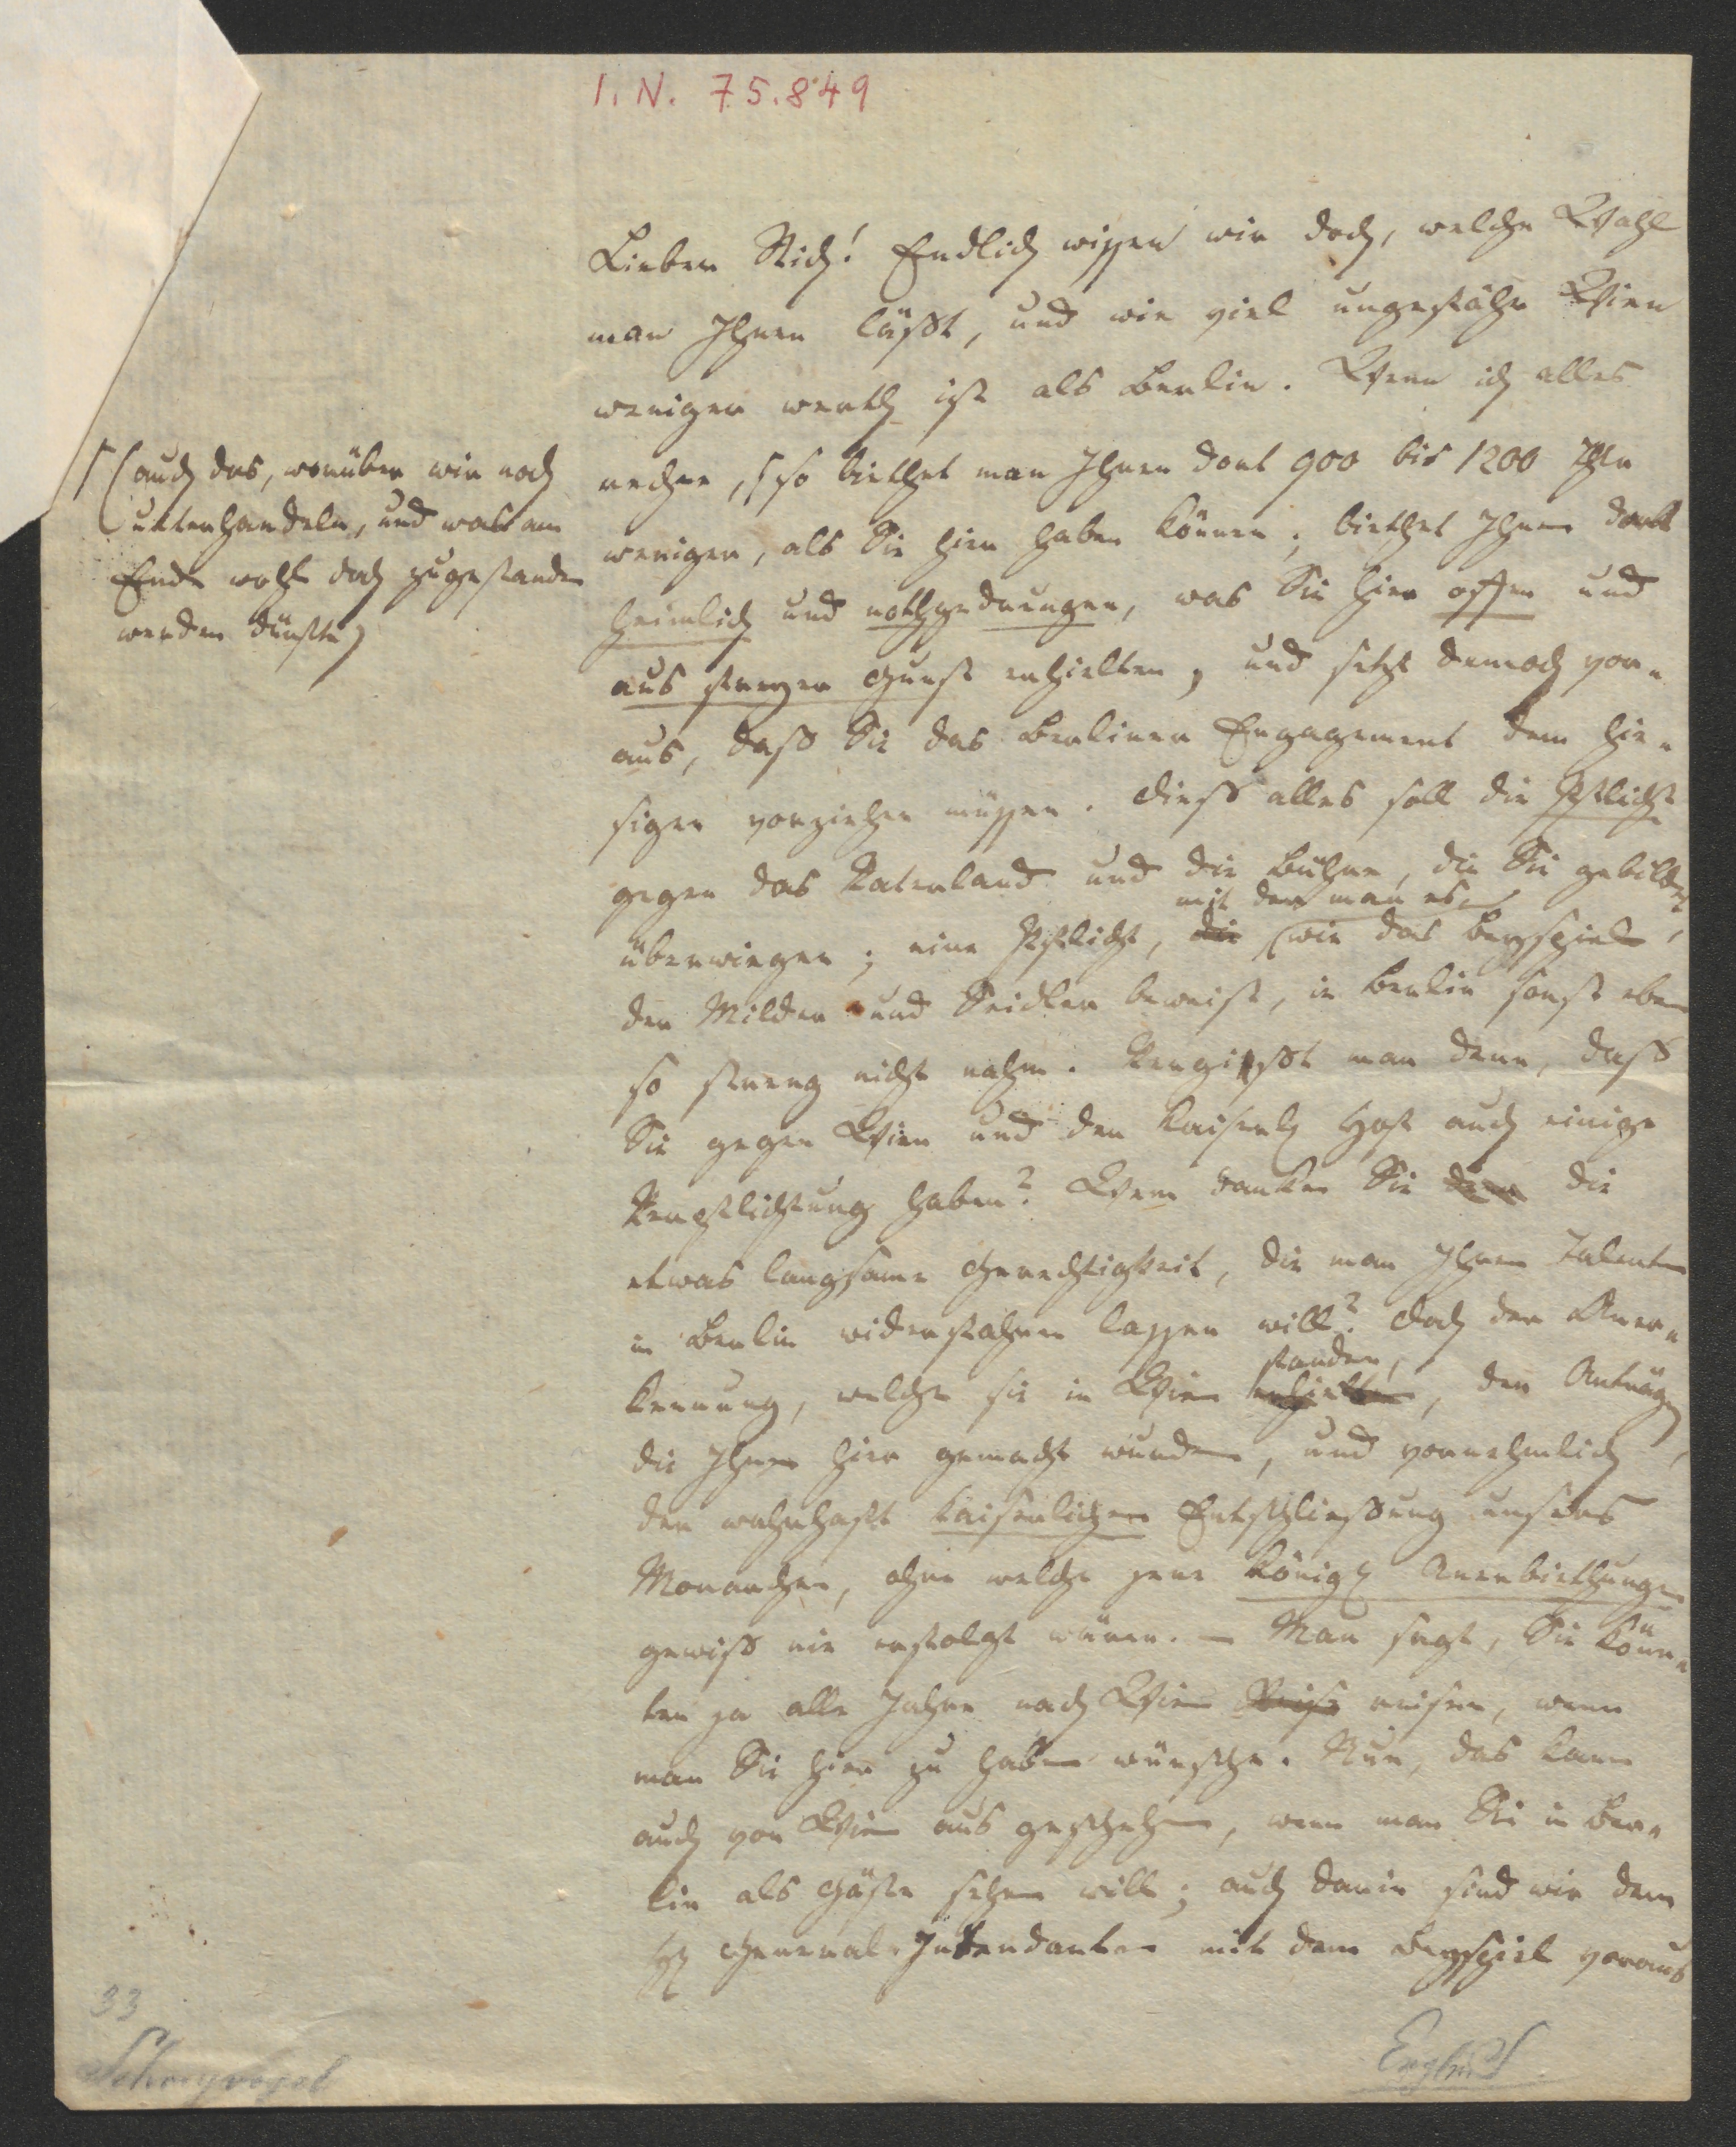 I. N. 75.849
Lieber Stich! Endlich wissen wir doch, welche Wahl
man Ihnen läßt, und wie viel ungefähr Wien
weniger werth ist als Berlin. Wenn ich alles
rechne, ⌈ so biethet man Ihnen dort 900 bis 1200 Thlr
weniger, als Sie hier haben können; biethet Ihnen dort
heimlich und nothgedrungen, was Sie hier offen und
aus freyer Gunst erhielten, und setzt dennoch vor-
aus, daß Sie das Berliner Engagement dem hie-
sigen vorziehen müssen. Dieß alles soll die Pflicht
gegen das Vaterland und die Bühne, die Sie gebildet,
mit der man es
überwiegen; eine Pflicht, die (wie das Beyspiel
der Milder und Seidler beweist, in Berlin sonst eben
so streng nicht nahm. Vergißt man denn, daß
Sie gegen Wien und den Kaiserl Hof auch einige
Verpflichtung haben? Wem danken Sie denn die
etwas langsame Gerechtigkeit, die man Ihrem Talente
in Berlin widerfahren lassen will? Doch der Aner-
fanden,
kennung, welche sie in Wien erhielten, den Anträgen,
die Ihnen hier gemacht wurden, und vornehmlich
der wahrhaft kaiserlichen Entschließung unsers
Monarchen, ohne welche jene Königl Anerbiethungen
gewiß nie erfolgt wären. – Man sagt, Sie könn-
ten ja alle Jahre nach Wien Reise reisen, wenn
man Sie hier zu haben wünsche. Nun, das kann
auch von Wien aus geschehen, wenn man Sie in Ber-
lin als Gäste sehen will; auch darin sind wir dem
H General-Intendanten mit dem Beyspiel voraus
⌈ (auch das, worüber wir noch
unterhandeln, und was am
Ende wohl doch zugestanden
werden dürfte)
33
Schreyvogel